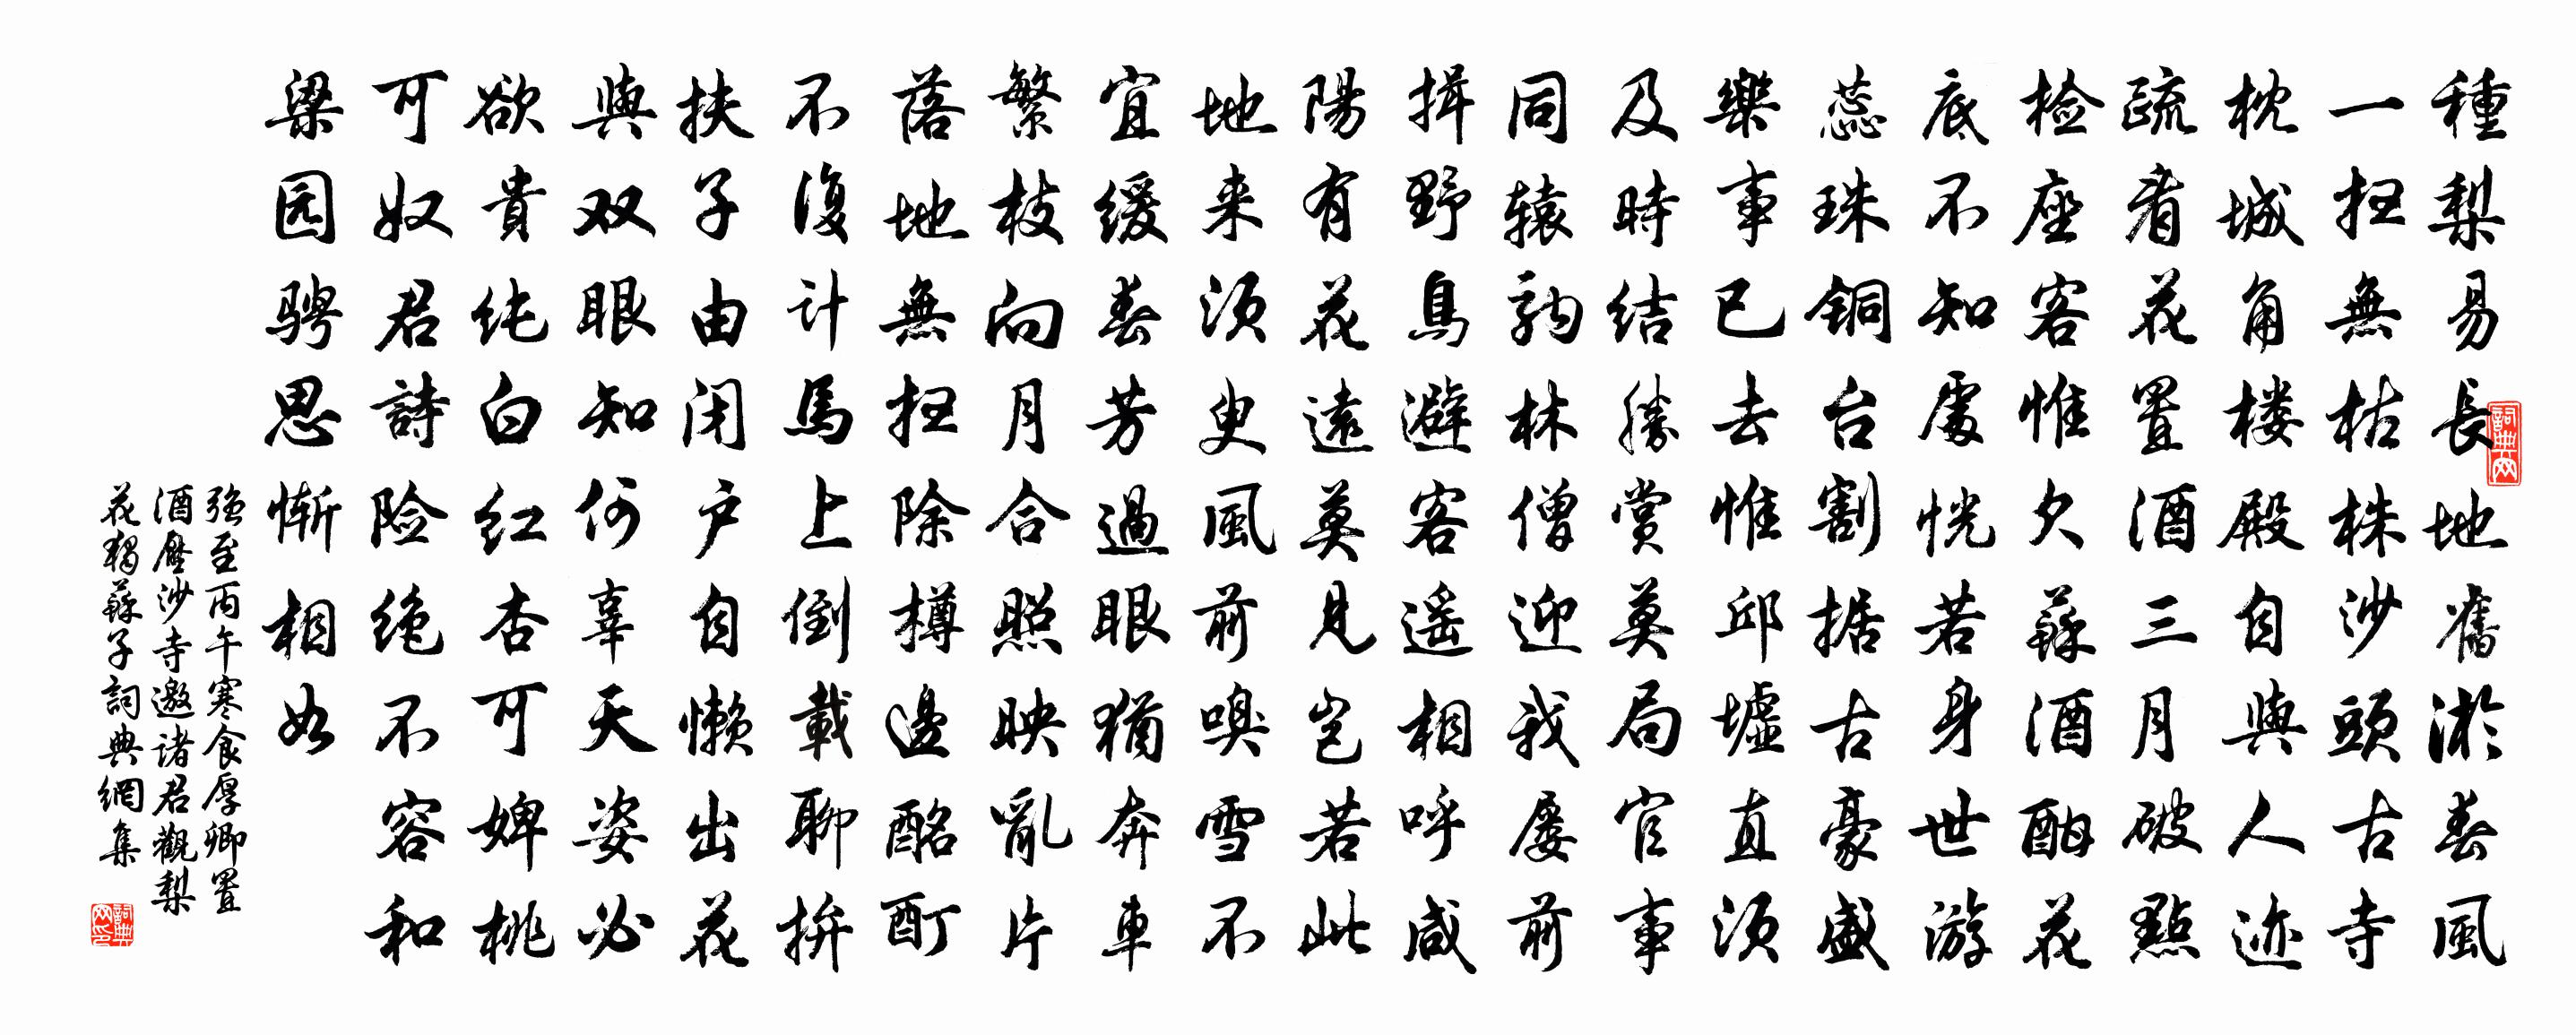 種梨易長地舊淤春風
一抂無枯株沙頭古寺
枕城角楼殿自與人迹
疏看花置酒三月破點
检座客惟欠蘇酒酣花
底不知處恍若身世游
蕊珠铜台割据古豪盛
樂事已去惟邱墟直须
及時结勝赏莫局官事
同辕駒林僧迎我屡前
揖野鳥避客遥相呼咸
陽有花遠莫見岂若此
地来须臾風前嗅雪不
宜缓春芳過眼猶奔車
繁枝向月合照映亂片
落地無抂除樽邊酩酊
不復计馬上倒載聊拚
扶子由闭户自懒出花
與双眼知何辜天姿必
欲貴纯白红杏可婢桃
可奴君詩险绝不容和
梁园骋思惭相如
强至丙午寒食厚卿置
酒壓沙寺邀诸君觀梨
花獨蘇子詞典網集
詞典网
詞典网印